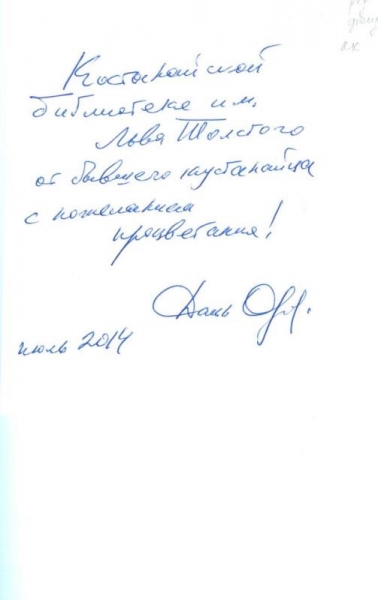 Костанайской
библиотеке им.
Льва Толстого
от бывшего кустанайца
с пожеланием
процветания!
Дань
июль 2014